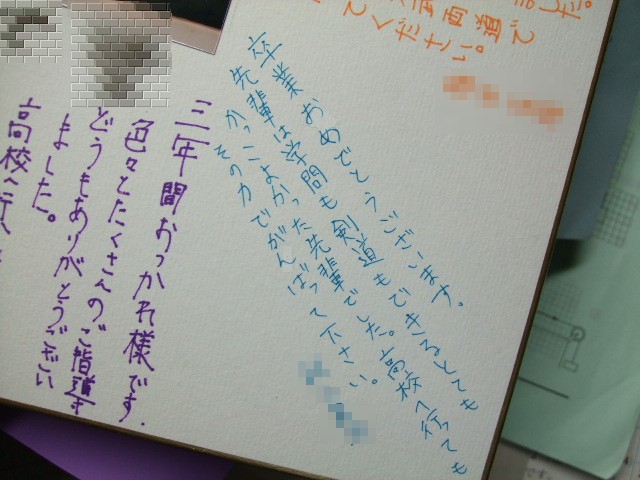 てください。
武両道で
した。
卒業おめでとうございます。
先輩は学問も剣道もできるとても
かっこよかった先輩でした。高校へ行っても
その力でがんばって下さい。
三年間おつかれ様です.
色々とたくさんのご指導を
どうもありがとうござい
ました。
高校へ行